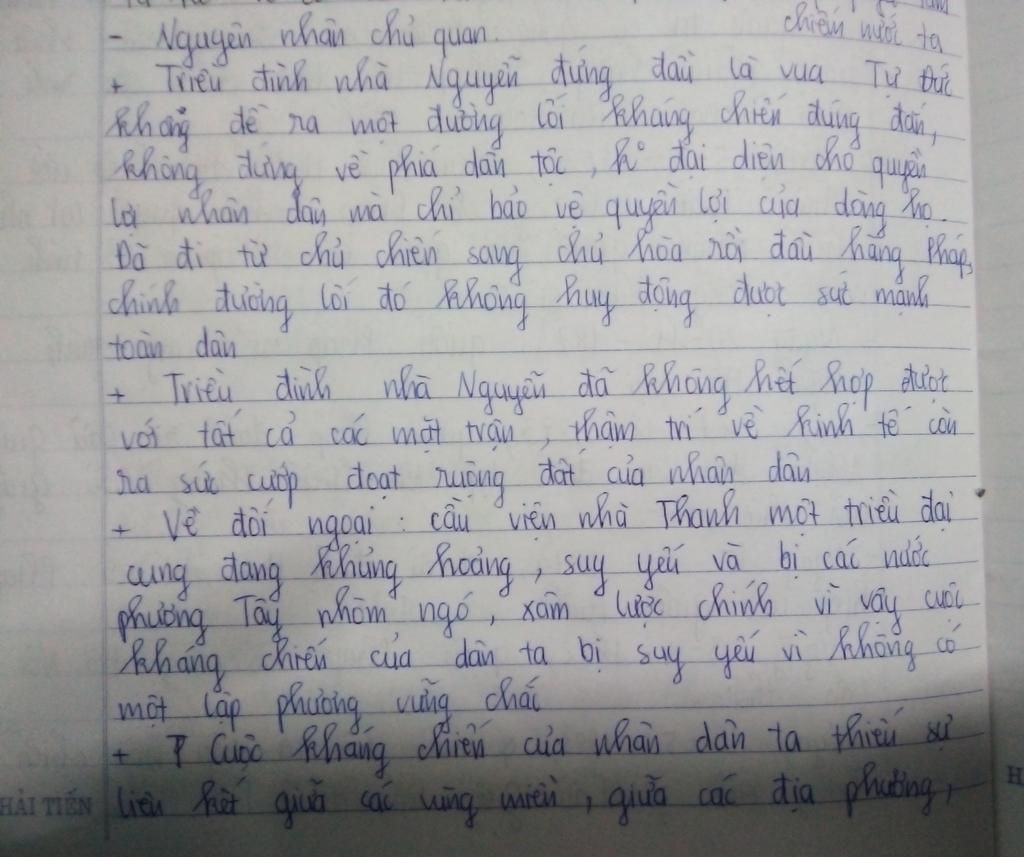 - Nguyên nhân chủ quan.
chiếm nước ta
+ Triều đình nhà Nguyễn đứng đầu là vua Tự Đức
không đề ra một đường lối kháng chiến đúng đắn,
không đứng về phía dân tộc, k° đại diện cho quyền
lợi nhân dân mà chỉ bảo vệ quyền lợi của dòng họ.
Đã đi từ chủ chiến sang chủ hòa rồi đầu hàng Pháp,
chính đường lối đó không huy động được sức mạnh
toàn dân
+ Triều đình nhà Nguyễn đã không kết hợp được
với tất cả các mặt trận, thậm trí về kinh tế còn
ra sức cướp đoạt ruộng đất của nhân dân
+ Về đối ngoại: cầu viện nhà Thanh một triều đại
cung đang khủng hoảng, suy yếu và bị các nước
phương Tây nhòm ngó, xâm lược chính vì vậy cuộc
kháng chiến của dân ta bị suy yếu vì không có
một lập phương vững chắc
+ Cuộc kháng chiến của nhân dân ta thiếu sự
liên kết giữa các vùng miền, giữa các địa phương,
HẢI TIẾN
H